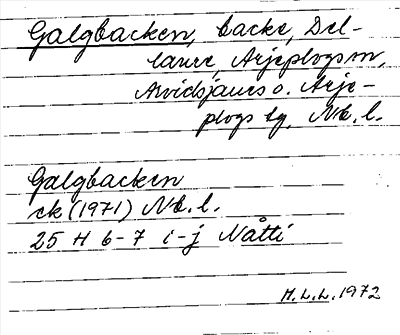 Galgbacken, backe, Del-
laure Arjeplogs sn,
Arvidsjaurs o. Arje-
plogs tg, Nb. l.
Galgbacken
ek (1971) Nb. l.
25 H 6-7 i-j Nåtti
H. L. L. 1972